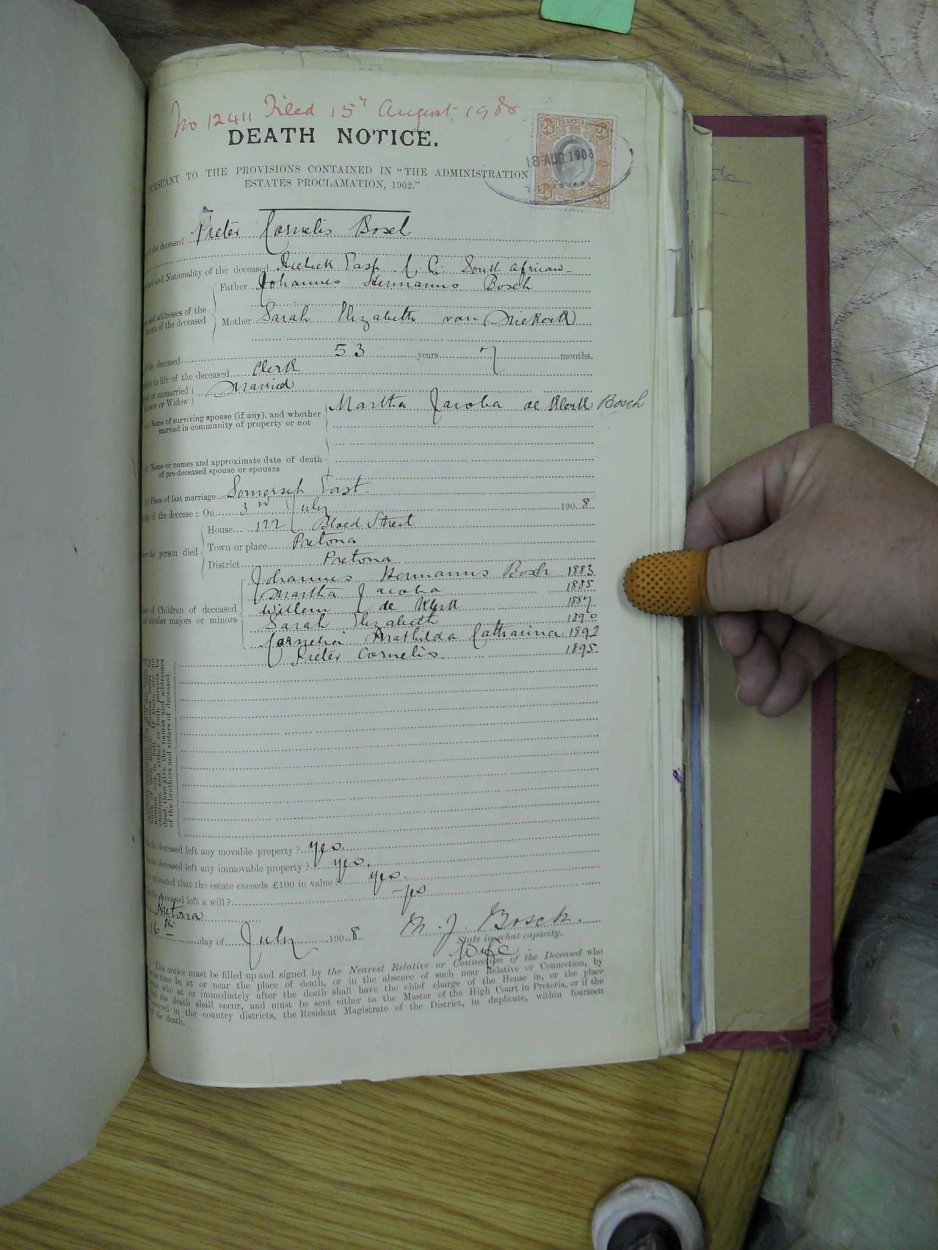 No 12411 Filed 15th August 1908.
DEATH NOTICE.
TRANSVAAL
2/6 2/6
18 AUG 1908
2/6 2/6
PURSUANT TO THE PROVISIONS CONTAINED IN "THE ADMINISTRATION
ESTATES PROCLAMATION, 1902."
of the deceased Pieter Cornelis Bosch
and Nationality of the deceased Riebeek East C. C. South African
Father Johannes Hermanus Bosch
and addresses of the
parents of the deceased
Mother Sarah Elizabeth van Niekerk
the deceased 53 years 7 months.
in life of the deceased Clerk
or unmarried Married
Widower or Widow
Name of surviving spouse (if any), and whether Martha Jacoba de Klerk Bosch
married in community of property or not
Name or names and approximate date of death
of pre-deceased spouse or spouses
Place of last marriage Somerset East
of the decease: On 3rd July 1908
House 122 Bloed Street
the person died Town or place Pretoria
District Pretoria
Johannes Hermanus Bosch 1883
Martha Jacoba 1885
Names of Children of deceased Willem J de Klerk 1887
whether majors or minors Sarah Elizabeth 1890
Cornelia Mathilda Catharina 1892
Pieter Cornelis 1895.
dead, then give the names and addresses
of the brothers and sisters of deceased
the deceased left any movable property? yes.
the deceased left any immovable property? yes.
estimated that the estate exceeds £100 in value? yes.
the deceased left a will? yes
Pretoria
16th day of July 1908
M. J. Bosch.
State in what capacity.
Wife
This notice must be filled up and signed by the Nearest Relative or Connection of the Deceased who
time be at or near the place of death, or in the absence of such near Relative or Connection, by
who at or immediately after the death shall have the chief charge of the House in, or the place
the death shall occur, and must be sent either to the Master of the High Court in Pretoria, or if the
occurred in the country districts, the Resident Magistrate of the District, in duplicate, within fourteen
the death.